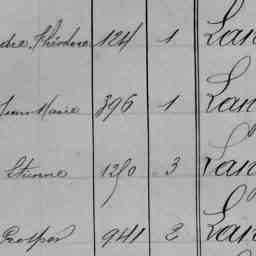 dre Théodore 124 1 Lan
Jean Marie 396 1 Lan
Etienne 1250 3 Lan
Prosper 941 2 Lan